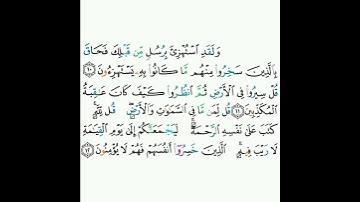 وَلَقَدِ ٱسْتُهْزِئَ بِرُسُلٍ مِّن قَبْلِكَ فَحَاقَ
بِٱلَّذِينَ سَخِرُوا۟ مِنْهُم مَّا كَانُوا۟ بِهِۦ يَسْتَهْزِءُونَ ١٠
قُلْ سِيرُوا۟ فِى ٱلْأَرْضِ ثُمَّ ٱنظُرُوا۟ كَيْفَ كَانَ عَٰقِبَةُ
ٱلْمُكَذِّبِينَ ١١ قُل لِّمَن مَّا فِى ٱلسَّمَٰوَٰتِ وَٱلْأَرْضِ ۖ قُل لِّلَّهِ ۚ
كَتَبَ عَلَىٰ نَفْسِهِ ٱلرَّحْمَةَ ۚ لَيَجْمَعَنَّكُمْ إِلَىٰ يَوْمِ ٱلْقِيَٰمَةِ
لَا رَيْبَ فِيهِ ۚ ٱلَّذِينَ خَسِرُوٓا۟ أَنفُسَهُمْ فَهُمْ لَا يُؤْمِنُونَ ١٢